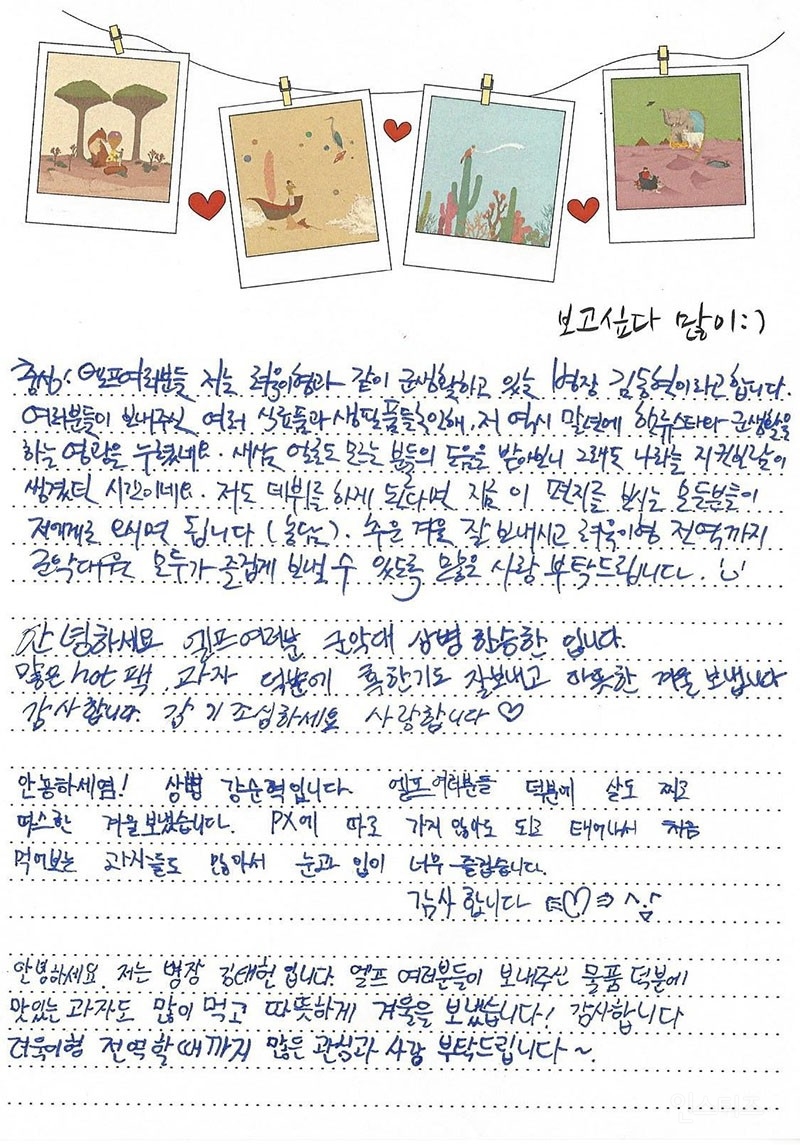 보고싶다 많이:)
충성! 엘프여러분들 저는 려욱이형과 같이 군생활하고 있는 병장 김동혁이라고합니다.
여러분들이 보내주신 여러 식료품과 생필품들로인해, 저 역시 말년에 핫뉴스타와 군생활을
하는 영광을 누렸네요. 새삼 얼굴도 모르는 분들의 도움을 받아보니 그래도 나라를 지킨보람이
생겼던 시간이네요. 저도 데뷔를 하게 된다면 지금 이 편지를 보시는 모든분들이
저에게로 오시면 됩니다 (농담). 추운 겨울 잘 보내시고 려욱이형 전역까지
군악대원 모두가 즐겁게 보낼 수 있도록 많은 사랑 부탁드립니다.
안녕하세요 엘프여러분 군악대 상병 한승한 입니다.
많은 hot팩, 과자 덕분에 혹한기도 잘보내고 따뜻한 겨울 보냅니다
감사합니다. 감기조심하세요 사랑합니다♡
안농하세염! 상병 강순혁입니다. 엘프여러분들 덕분에 살도 찌고
따스한 겨울 보냈습니다. PX에 따로 가지 않아도 되고 태어나서 처음
먹어보는 과자들도 많아서 눈과 입이 너무 즐겁습니다.
감사합니다
안녕하세요. 저는 병장 김태헌입니다. 엘프 여러분들이 보내주신 물품 덕분에
맛있는 과자도 많이 먹고 따뜻하게 겨울을 보냈습니다! 감사합니다
려욱이형 전역할때까지 많은 관심과 사랑 부탁드립니다~.
인스티즈